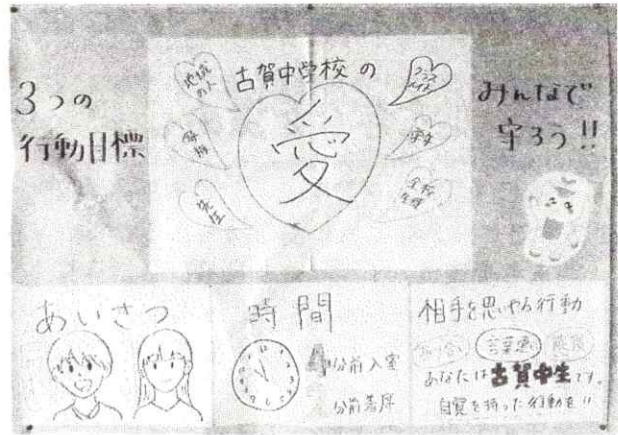 3つの
行動目標
古賀中学校の
愛
地域の人
先生
クラスメイト
全校生徒
みんなで
守ろう!!
あいさつ
時間
分前入室
分前着席
相手を思いやる行動
言葉遣い
あなたは古賀中生です。
自覚を持った行動を!!